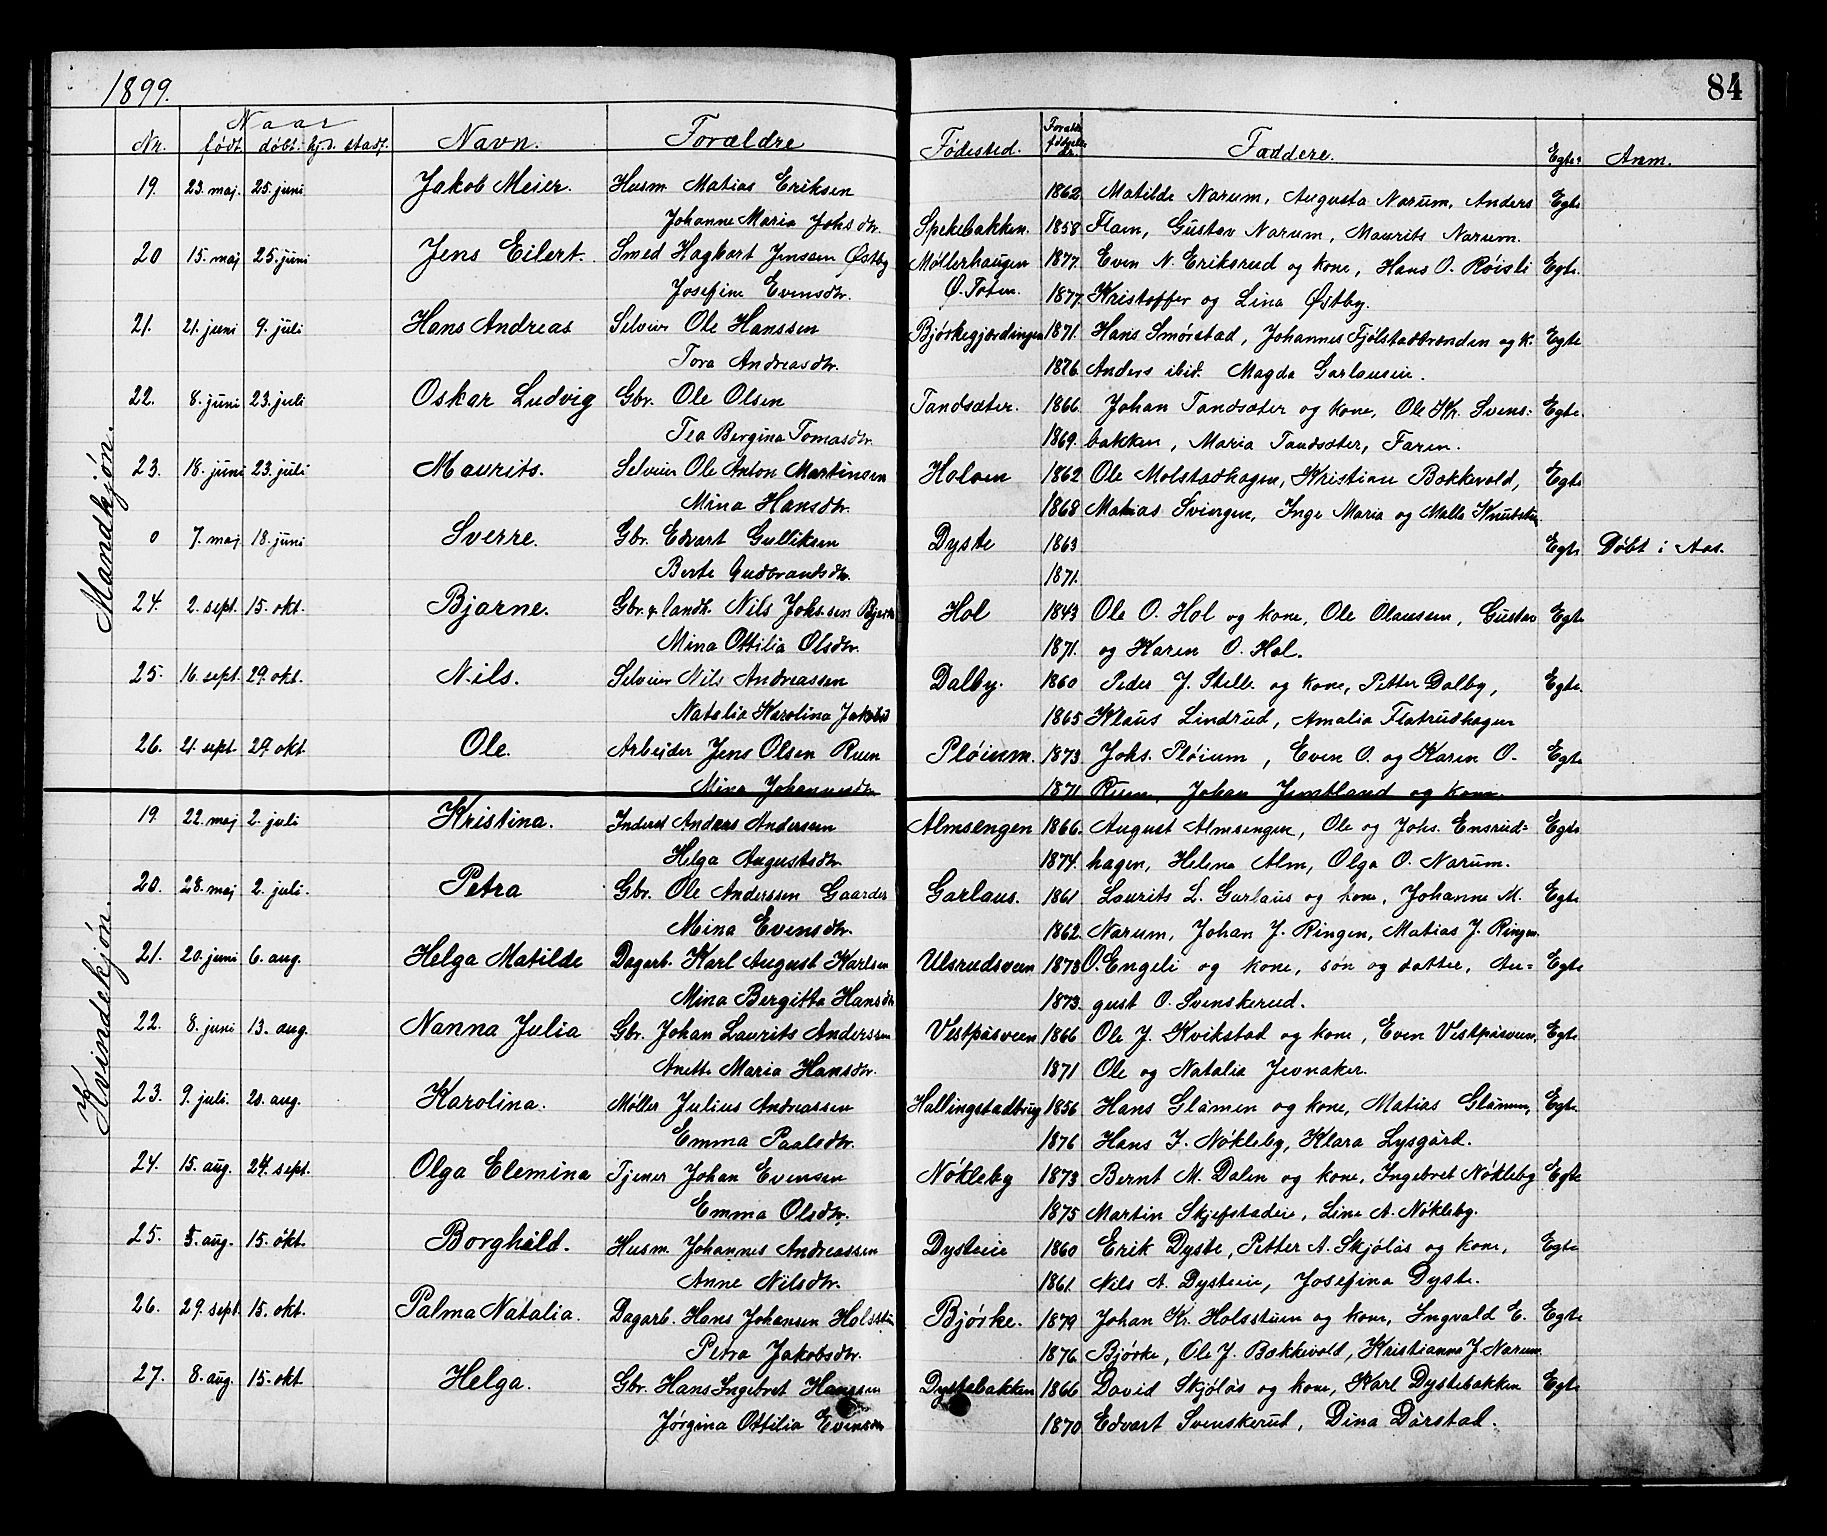 1899.
84
Naar
Nr. født. døbt. hjd. stadf. Navn. Forældre Fødested. Foræld. fødsels år. Faddere. Egte Anm.
Mandkjøn.
19. 23. maj. 25. juni Jakob Meier. Husm Matias Eriksen 1862 Matilde Narum, Augusta Narum, Anders Egte
Johanne Maria Johsdtr. Spekebakken. 1858 Flam, Gustav Narum, Maurits Narum.
20 15. maj 25. juni Jens Eilert. Smed Hagbart Jensen Østby Møllerhaugen 1877. Even N. Eriksrud og kone, Hans O. Røisli Egte.
Josefine Evensdtr. Ø. Toten. 1877. Kristoffer og Lina Østby.
21. 21. juni 9. juli Hans Andreas Selveier Ole Hanssen Bjørkegjærdingen 1871. Hans Smørstad, Johannes Fjølstadbrenden og k. Egte
Tora Andreasdtr. 1876. Anders ibid. Magda Garlausein.
22. 8. juni 23. juli Oskar Ludvig Gbr. Ole Olsen Tandsæter. 1866 Johan Tandsæter og kone, Ole Kr. Svens- Egte.
Tea Bergina Tomasdtr. 1869. bakken, Maria Tandsæter, Faren.
23. 18. juni 23. juli Maurits. Selveier Ole Anton Martinsen Holom 1862 Ole Molstadhagen, Kristian Bakkevold, Egte
Mina Hansdtr. 1868 Matias Sviergen, Inge Maria og Malla Knutstuen
0 7. maj 18. juni Sverre. Gbr. Edvart Gulliksen Dyste 1863 Egte Døbt i Aas.
Berte Gudbrandsdtr. 1871.
24. 2. sept. 15. okt. Bjarne. Gbr. & landh. Nils Johssen Bjerke Hol 1843 Ole O. Hol og kone, Ole Olaussen, Gustav Egte
Mina Ottilia Olsdtr. 1871. og Karen O. Hol.
25. 16. sept. 29. okt. Nils. Selveier Nils Andreassen Dalby. 1860 Peder J. Stelb. og kone, Petter Dalby, Egte.
Natalia Karolina Jakobsd 1865 Klaus Lindrud, Amalia Flatrudhagen
26. 21. sept 29. okt Ole. Arbejder Jens Olsen Ruen Pløium. 1873 Johs. Pløium, Even O. og Karen O. Egte
Mina Johannesdtr 1871 Ruen, Johan Jemtland og kone.
Kvindekjøn.
19. 22. maj 2. juli Kristina. Inderst Anders Andersen Almsengen 1866. August Almsengen, Ole og Johs. Ensrud- Egte
Helga Augustsdtr. 1874. hagen, Helena Alm, Olga O. Narum.
20. 28. maj 2. juli. Petra Gbr. Ole Anderssen Gaarder Garlaus. 1861 Laurits L. Garlaus og kone, Johanne M. Egte
Mina Evensdtr. 1862 Narum, Johan J. Ringen, Matias J. Ringen.
21. 20. juni 6. aug. Helga Matilde Dagarb. Karl August Karlsen Ulsrudsveen 1873 O. Engeli og kone, søn og datter, Au- Egte
Mina Bergitta Hansdtr 1873. gust O. Svenskerud.
22. 8. juni 13. aug. Nanna Julia Gbr. Johan Laurits Anderssen Vestpåsveen 1866 Ole J. Kvikstad og kone, Even Vestpåsveen, Egte
Anette Maria Hansdtr. 1871 Ole og Natalia Jevnaker.
23. 9. juli. 20. aug. Karolina. Møller Julius Andreassen Hallingstadbrug 1856 Hans Glåmen og kone, Matias Glåmen, Egte
Emma Paalsdtr. 1876 Hans J. Nøkleby, Klara Lysgård.
24. 15. aug. 24. sept. Olga Elemina Tjener Johan Evensen Nøkleby 1873 Bernt M. Dalen og kone, Ingebret Nøkleby Egte
Emma Olsdtr. 1875 Martin Skjefstadeie, Line A. Nøkleby.
25. 5. aug. 15. okt. Borghild. Husm. Johannes Andreassen Dysteeie 1860 Erik Dyste, Petter A. Skjølås og kone, Egte
Anne Nilsdtr. 1861. Nils A. Dysteeie, Josefina Dyste.
26. 29. sept. 15. okt. Palma Natalia. Dagarb. Hans Johansen Holsstuen Bjørke. 1879 Johan Kr. Holsstuen og kone, Ingvald E. Egte
Petra Jakobsdtr. 1876. Bjørke, Ole J. Bakkevold, Kristianne J. Narum
27. 8. aug. 15. okt. Helga. Gbr. Hans Ingebret Hanssen Dystebakken 1866 David Skjølås og kone, Karl Dystebakken Egte
Jørgina Ottilia Evensen 1870 Edvart Svenskerud, Dina Dårstad.